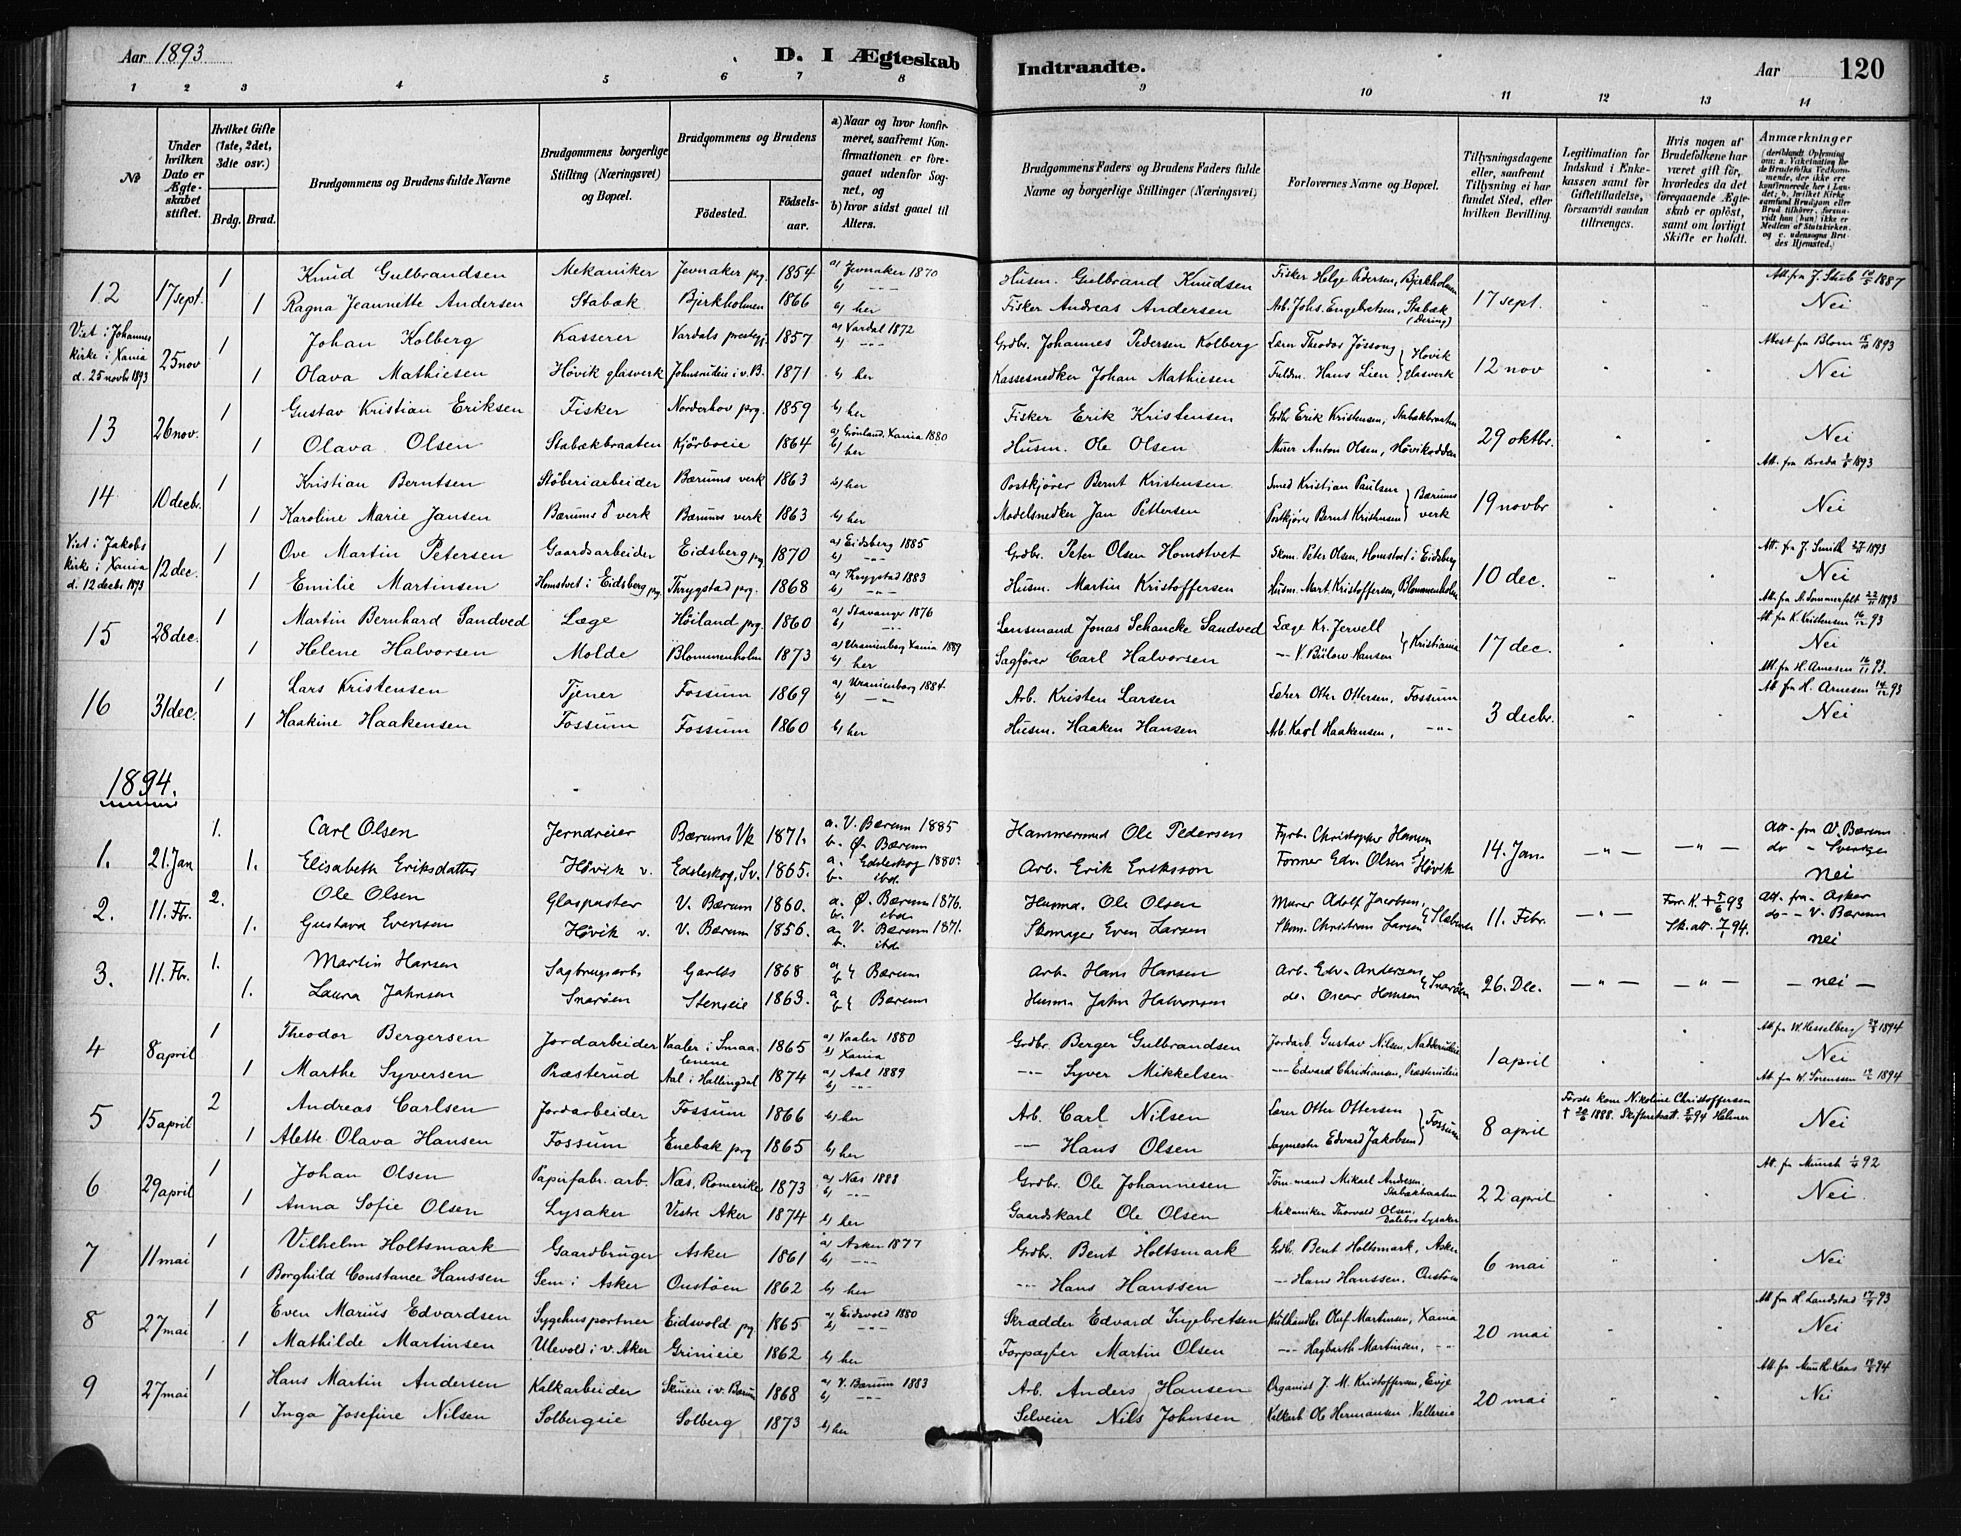 Aar 1893
D. I Ægteskab
Indtraadte.
Aar
120
1 2 3 4 5 6 7 8 9 10 11 12 13 14
No
Under hvilken Dato er Ægteskabet stiftet.
Hvilket Gifte (1ste, 2det, 3die osv.)
Brdg. Brud.
Brudgommens og Brudens fulde Navne
Brudgommens borgerlige Stilling (Næringsvei) og Bopæl.
Brudgommens og Brudens
Födested.
Födselsaar.
a) Naar og hvor konfirmeret, saafremt Konfirmationen er foregaaet udenfor Sognet, og
b) hvor sidst gaaet til Alters.
Brudgommens Faders og Brudens Faders fulde Navne og borgerlige Stillinger (Næringsvei)
Forlovernes Navne og Bopæl.
Tillysningsdagene eller, saafremt Tillysning ei har fundet Sted, efter hvilken Bevilling.
Legitimation for Indskud i Enkekassen samt for Giftetilladelse, forsaavidt saadan tiltrænges.
Hvis nogen af Brudefolkene har været gift för, hvorledes da det foregaaende Ægteskab er oplöst, samt om lovligt Skifte er holdt.
Anmærkninger
12 17 sept. 1 Knud Gulbrandsen Mekaniker Jevnaker prg. 1854 a) Jevnaker 1870 b) -- Husm. Gulbrand Knudsen Fisker Helge Pedersen, Bjerkholmen 17 sept. Att. fra J. Stub 1887
1 Ragna Jeannette Andersen Stabæk Bjerkholmen 1866 b) her Fisker Andreas Andersen Arb. Johs. Engebretsen, Stabæk Nei
Viet i Johannes kirke i Xania d. 25 novbr 1893
25 nov 1 Johan Kolberg Kasserer Vardals prestegj. 1857 a) Vardal 1872 b) -- Grdbr. Johannes Pedersen Kolberg Theodor Jössong Høvik glasverk 12 nov Attest fra Blom 1893
1 Olava Mathiesen Høvik glasverk Johnsrudeie i v. B. 1871 b) her Kassesnedker Johan Mathiesen Fuldm. Hans Lien Nei
13 26 nov. 1 Gustav Kristian Eriksen Fisker Norderhov prg. 1859 b) her Fisker Erik Kristensen Grdb. Erik Kristensen, Stabækbraaten 29 oktbr.
1 Olava Olsen Stabækbraaten Kjörboeie 1864 a) Grønland, Xania 1880 b) her Husm. Ole Olsen Murer Anton Olsen, Høvikodden Nei
Att. fra Breda 1893
14 10 decbr. 1 Kristian Berntsen Støberiarbeider Bærums verk 1863 b) her Postkjører Bernt Kristensen Smed Kristian Paulsen Bærums verk 19 novbr
1 Karoline Marie Jansen Bærums verk Bærums verk 1863 b) her Modelsnedker Jan Pettersen Postkjører Bernt Kristensen Nei
Viet i Jakobs kirke i Xania d. 12 decbr 1893
12 dec. 1 Ove Martin Petersen Gaardsarbeider Eidsberg prg. 1870 a) Eidsberg 1885 b) -- Grdbr. Peter Olsen Homstvet Skom. Peter Olsen, Homstvet i Eidsberg 10 dec. Att. fra J. Smith 1893
1 Emilie Martinsen Homstvet i Eidsberg prg. Thrygstad prg. 1868 a) Thrygstad 1883 b) -- Husm. Martin Kristoffersen Husm. Mart. Kristoffersen, Blommenholm Nei
Att. fra A. Sommerfelt 1893
15 28 dec. 1 Martin Bernhard Sandved Læge Høiland prg. 1860 a) Stavanger 1876 b) -- Lensmand Jonas Schancke Sandved Læge Kr. Jervell Kristiania 17 dec. Att. fra K. Kristensen 93
1 Helene Halvorsen Molde Blommenholm 1873 a) Uranienborg Xania 1889 b) her Sagfører Carl Halvorsen -- V. Bülow Hansen Nei
Att. fra H. Arnesen 93.
16 31 dec. 1 Lars Kristensen Tjener Fossum 1869 a) Uranienborg 1884. b) -- Arb. Kristen Larsen Lærer Otter Ottersen, Fossum 3 decbr. Att. fra H. Arnesen 93
1 Haakine Haakensen Fossum Fossum 1860 b) her Husm. Haaken Hansen Arb. Karl Haakensen, -"- Nei
1894.
1. 21. Jan 1. Carl Olsen Jerndreier Bærums Vk 1871. a. V. Bærum 1885 b. Ø. Bærum Hammersmed Ole Pedersen Fyrb. Christopher Hansen 14. Jan. -"- -"- Att. fra V. Bærum
1. Elisabeth Eriksdatter Høvik v. Edsleskog, Sv. 1865. a. Edsleskog 1880. b. ibd. Arb. Erik Eriksson Former Edv. Olsen Høvik do " Sverige nei
2. 11. Fbr. 2. Ole Olsen Glaspuster V. Bærum 1860. a. Ø. Bærum 1876. b. ibd. Husmd. Ole Olsen Murer Adolf Jacobsen, 11. Febr. -"- Att. fra Asker
1. Gustava Evensen Høvik v. V. Bærum 1856. a. V. Bærum 1871. b. ibd. Skomager Even Larsen Skom. Christian Larsen Sk. att. 94. do - V. Bærum nei
3. 11. Fbr. 1. Martin Hansen Sagbrugsarb. 1868 a b Bærum Arb. Hans Hansen Arb. Edv. Andersen Snarøen 26. Dec. -"- -"- - nei -
1. Laura Jahnsen Snarøen Stenseie 1863. a b Bærum Husm. Jahn Halvorsen do. Oscar Hansen
4 8 april 1 Theodor Bergersen Jordarbeider Vaaler i Smaalenene 1865 a) Vaaler 1880 b) Xania Grdbr. Berger Gulbrandsen Jordarb. Gustav Nilsen, Nadderudeie 1 april Att. fra W. Hesselberg 1894
1 Marthe Syversen Præsterud Aal i Hallingdal 1874 a) Aal 1889 b) -- -- Syver Mikkelsen -- Edvard Christiansen, Præsterudeie Nei
Att. fra W. Sørenssen 1894
5 15 april 2 Andreas Carlsen Jordarbeider Fossum 1866 b) her Arb. Carl Nilsen Lærer Otter Ottersen Fossum 8 april Første kone Nikoline Christoffersen † 1888. Skifteretsatt. 94 Helmer
1 Alette Olava Hansen Fossum Enebak prg 1865 b) her -- Hans Olsen Sagmester Edvard Jakobsen Nei
6 29 april 1 Johan Olsen Papirfabr. arb. Næs, Romerike 1873 a) Næs 1888 b) -- Grdbr. Ole Johannesen Tømmermand Mikael Andersen, Stabækbraaten 22 april Att. fra Munch 92
1 Anna Sofie Olsen Lysaker Vestre Aker 1874 b) her Gaardskarl Ole Olsen Mekaniker Thorvald Olsen, Lysaker Nei.
7 11 mai 1 Vilhelm Holtsmark Gaardbruger Asker 1861 a) Asker 1877 b) -- Grdbr. Bent Holtsmark Grdb. Bent Holtsmark, Asker 6 mai
1 Borghild Constance Hanssen Sem i Asker Onstøen 1862 b) her -- Hans Hanssen -- Hans Hanssen. Onstøen Nei
8 27 mai 1 Even Marius Edvardsen Sygehusportner Eidsvold prg 1865 a) Eidsvold 1880 b) -- Skrædder Edvard Ingebretsen Kulhandler Oluf Martinsen, Xania 20 mai Att. fra H. Landstad 93
1 Mathilde Martinsen Ulevold i v. Aker Grinieie 1862 b) her Forpagter Martin Olsen -- Hagbarth Martinsen, -- Nei
9 27 mai 1 Hans Martin Andersen Kalkarbeider Skuieie i v. Bærum 1868 a) V. Bærum 1883 b) -- Arb. Anders Hansen Organist J. M. Kristoffersen, Evje 20 mai Att. fra Munth. Kaas 94
1 Inga Josefine Nilsen Solbergeie Solberg 1873 b) her Selveier Nils Johnsen Kalkarb Ole Hermansen Vallereie Nei